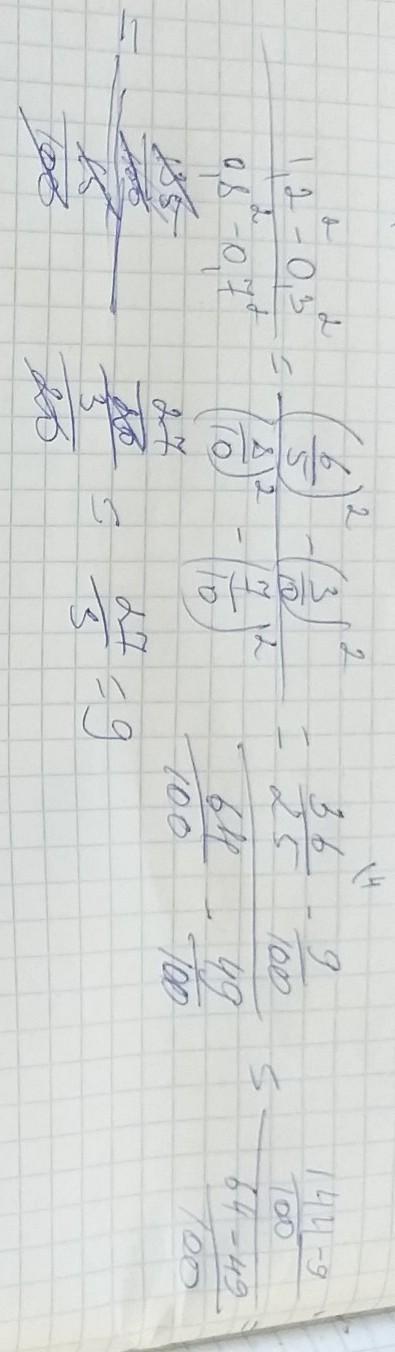 (1,2² - 0,3²)/(0,8² - 0,7²) = ((6/5)² - (3/10)²)/((8/10)² - (7/10)²) = (36/25 \4 - 9/100)/(64/100 - 49/100) = ((144-9)/100)/((64-49)/100) =
= (135/100)/(15/100) (27/20)/(3/20) = 27/3 = 9